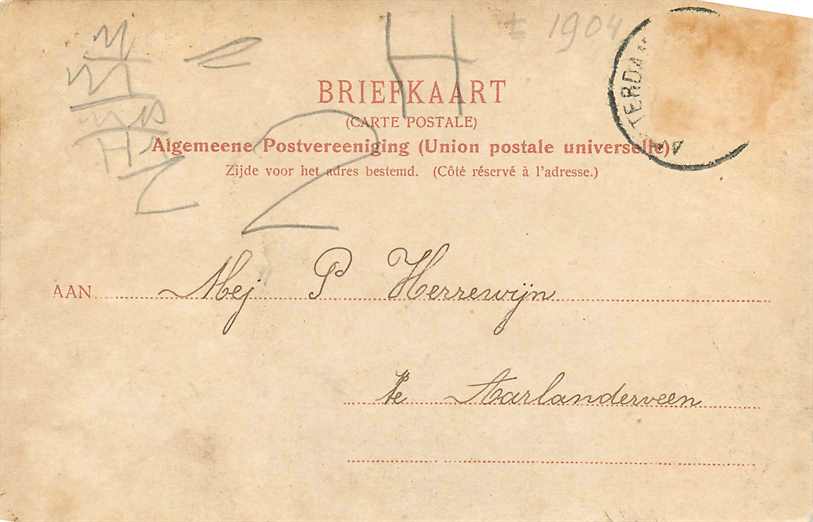 ± 1904
H
2
BRIEFKAART
(CARTE POSTALE)
Algemeene Postvereeniging (Union postale universelle)
Zijde voor het adres bestemd. (Côté réservé à l'adresse.)
AAN Mej P Herrewijn
te Aarlanderveen